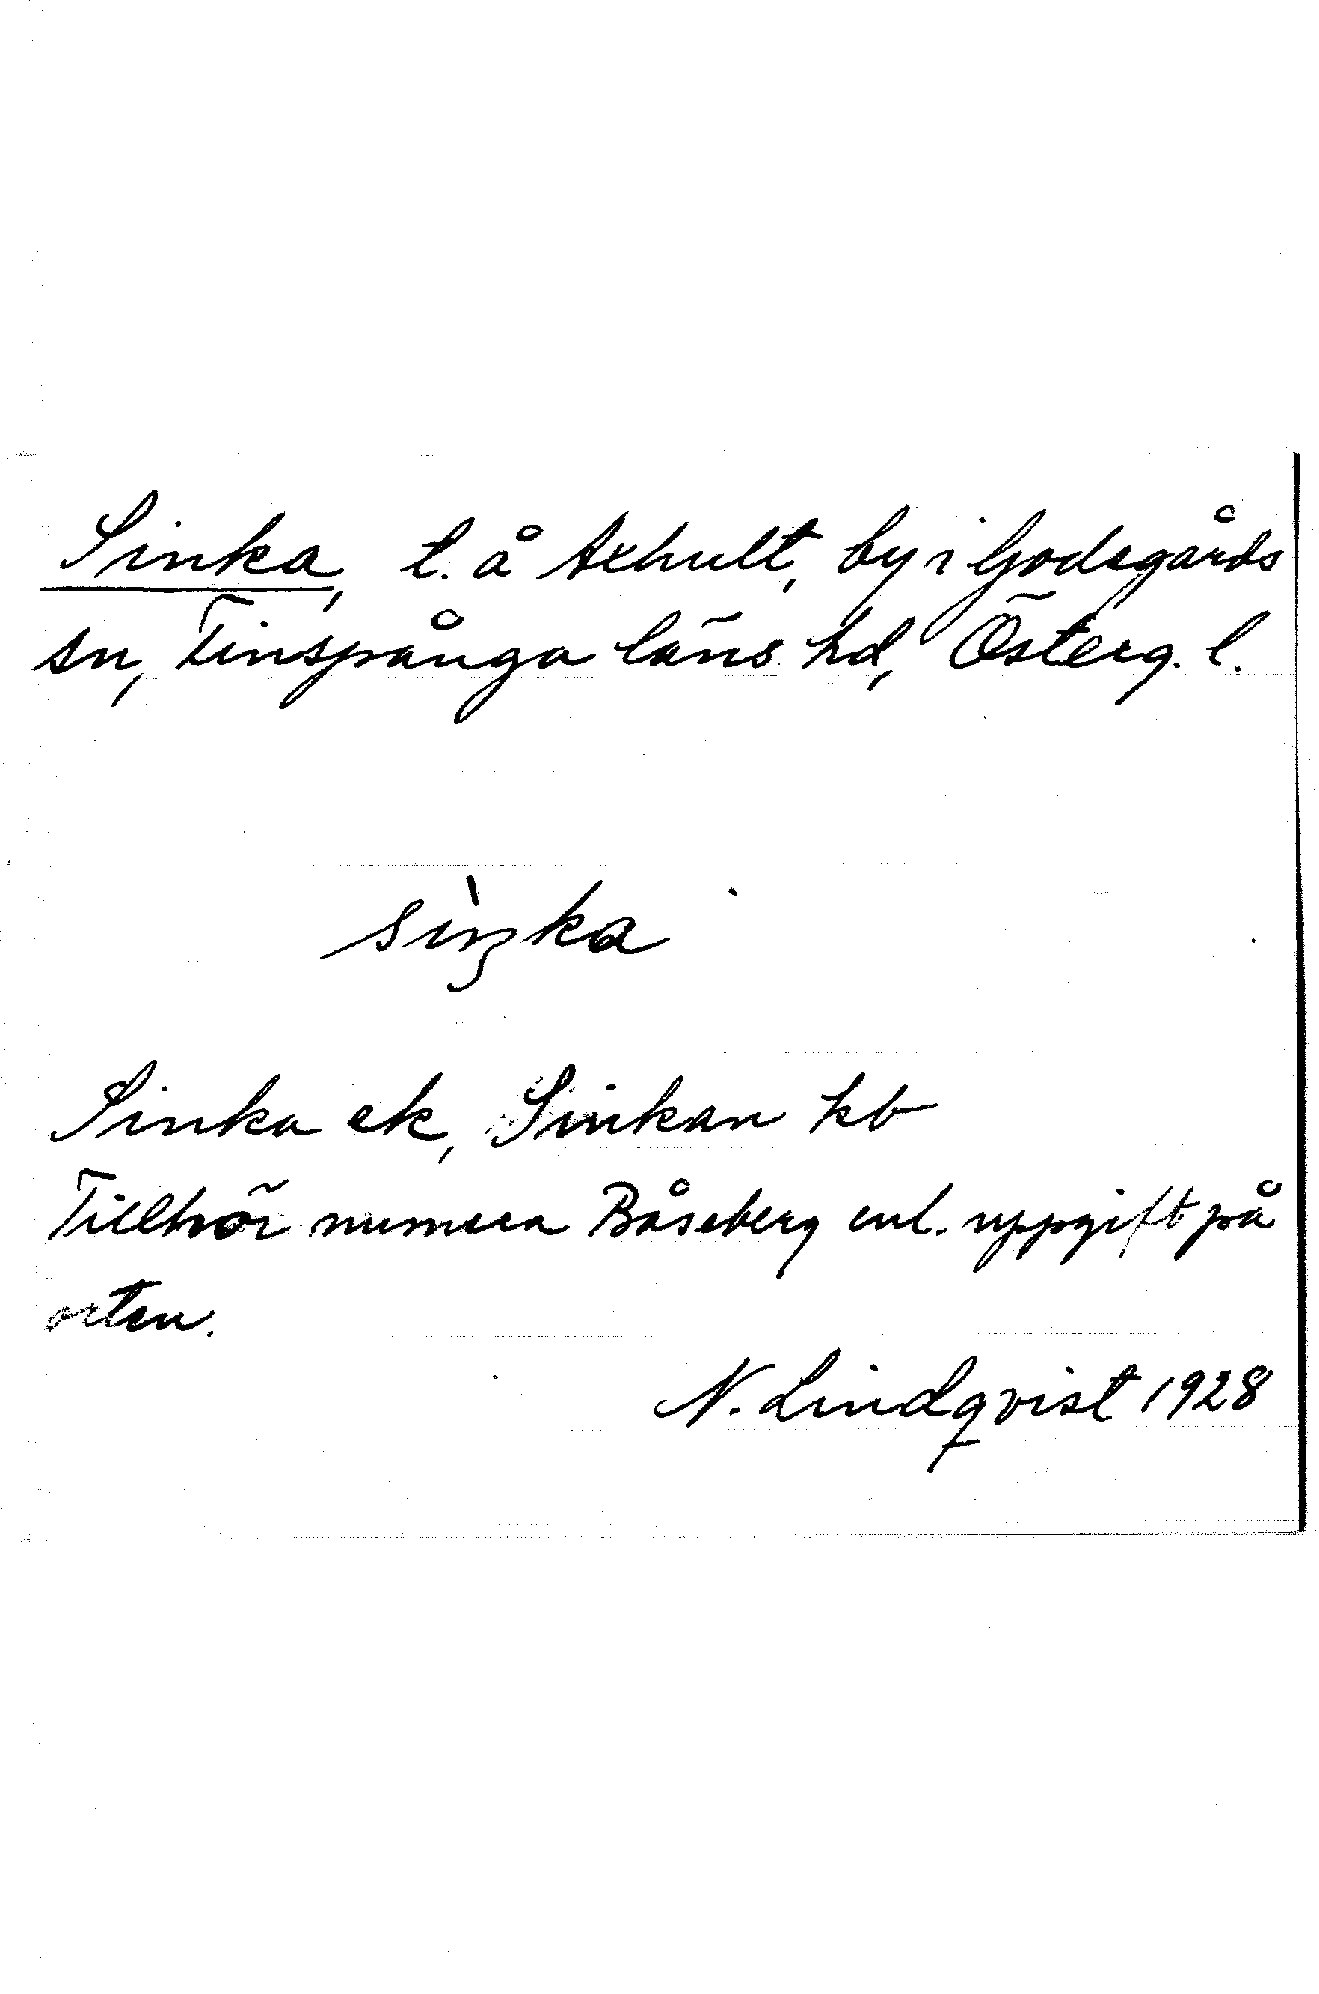 Sinka, t. å Axhult, by i Godegårds
sn, Finspånga läns hd, Österg. l.
sìŋka
Sinka ek, Sinkan kb
Tillhör numera Båseberg enl. uppgift på
orten.
N. Lindqvist 1928